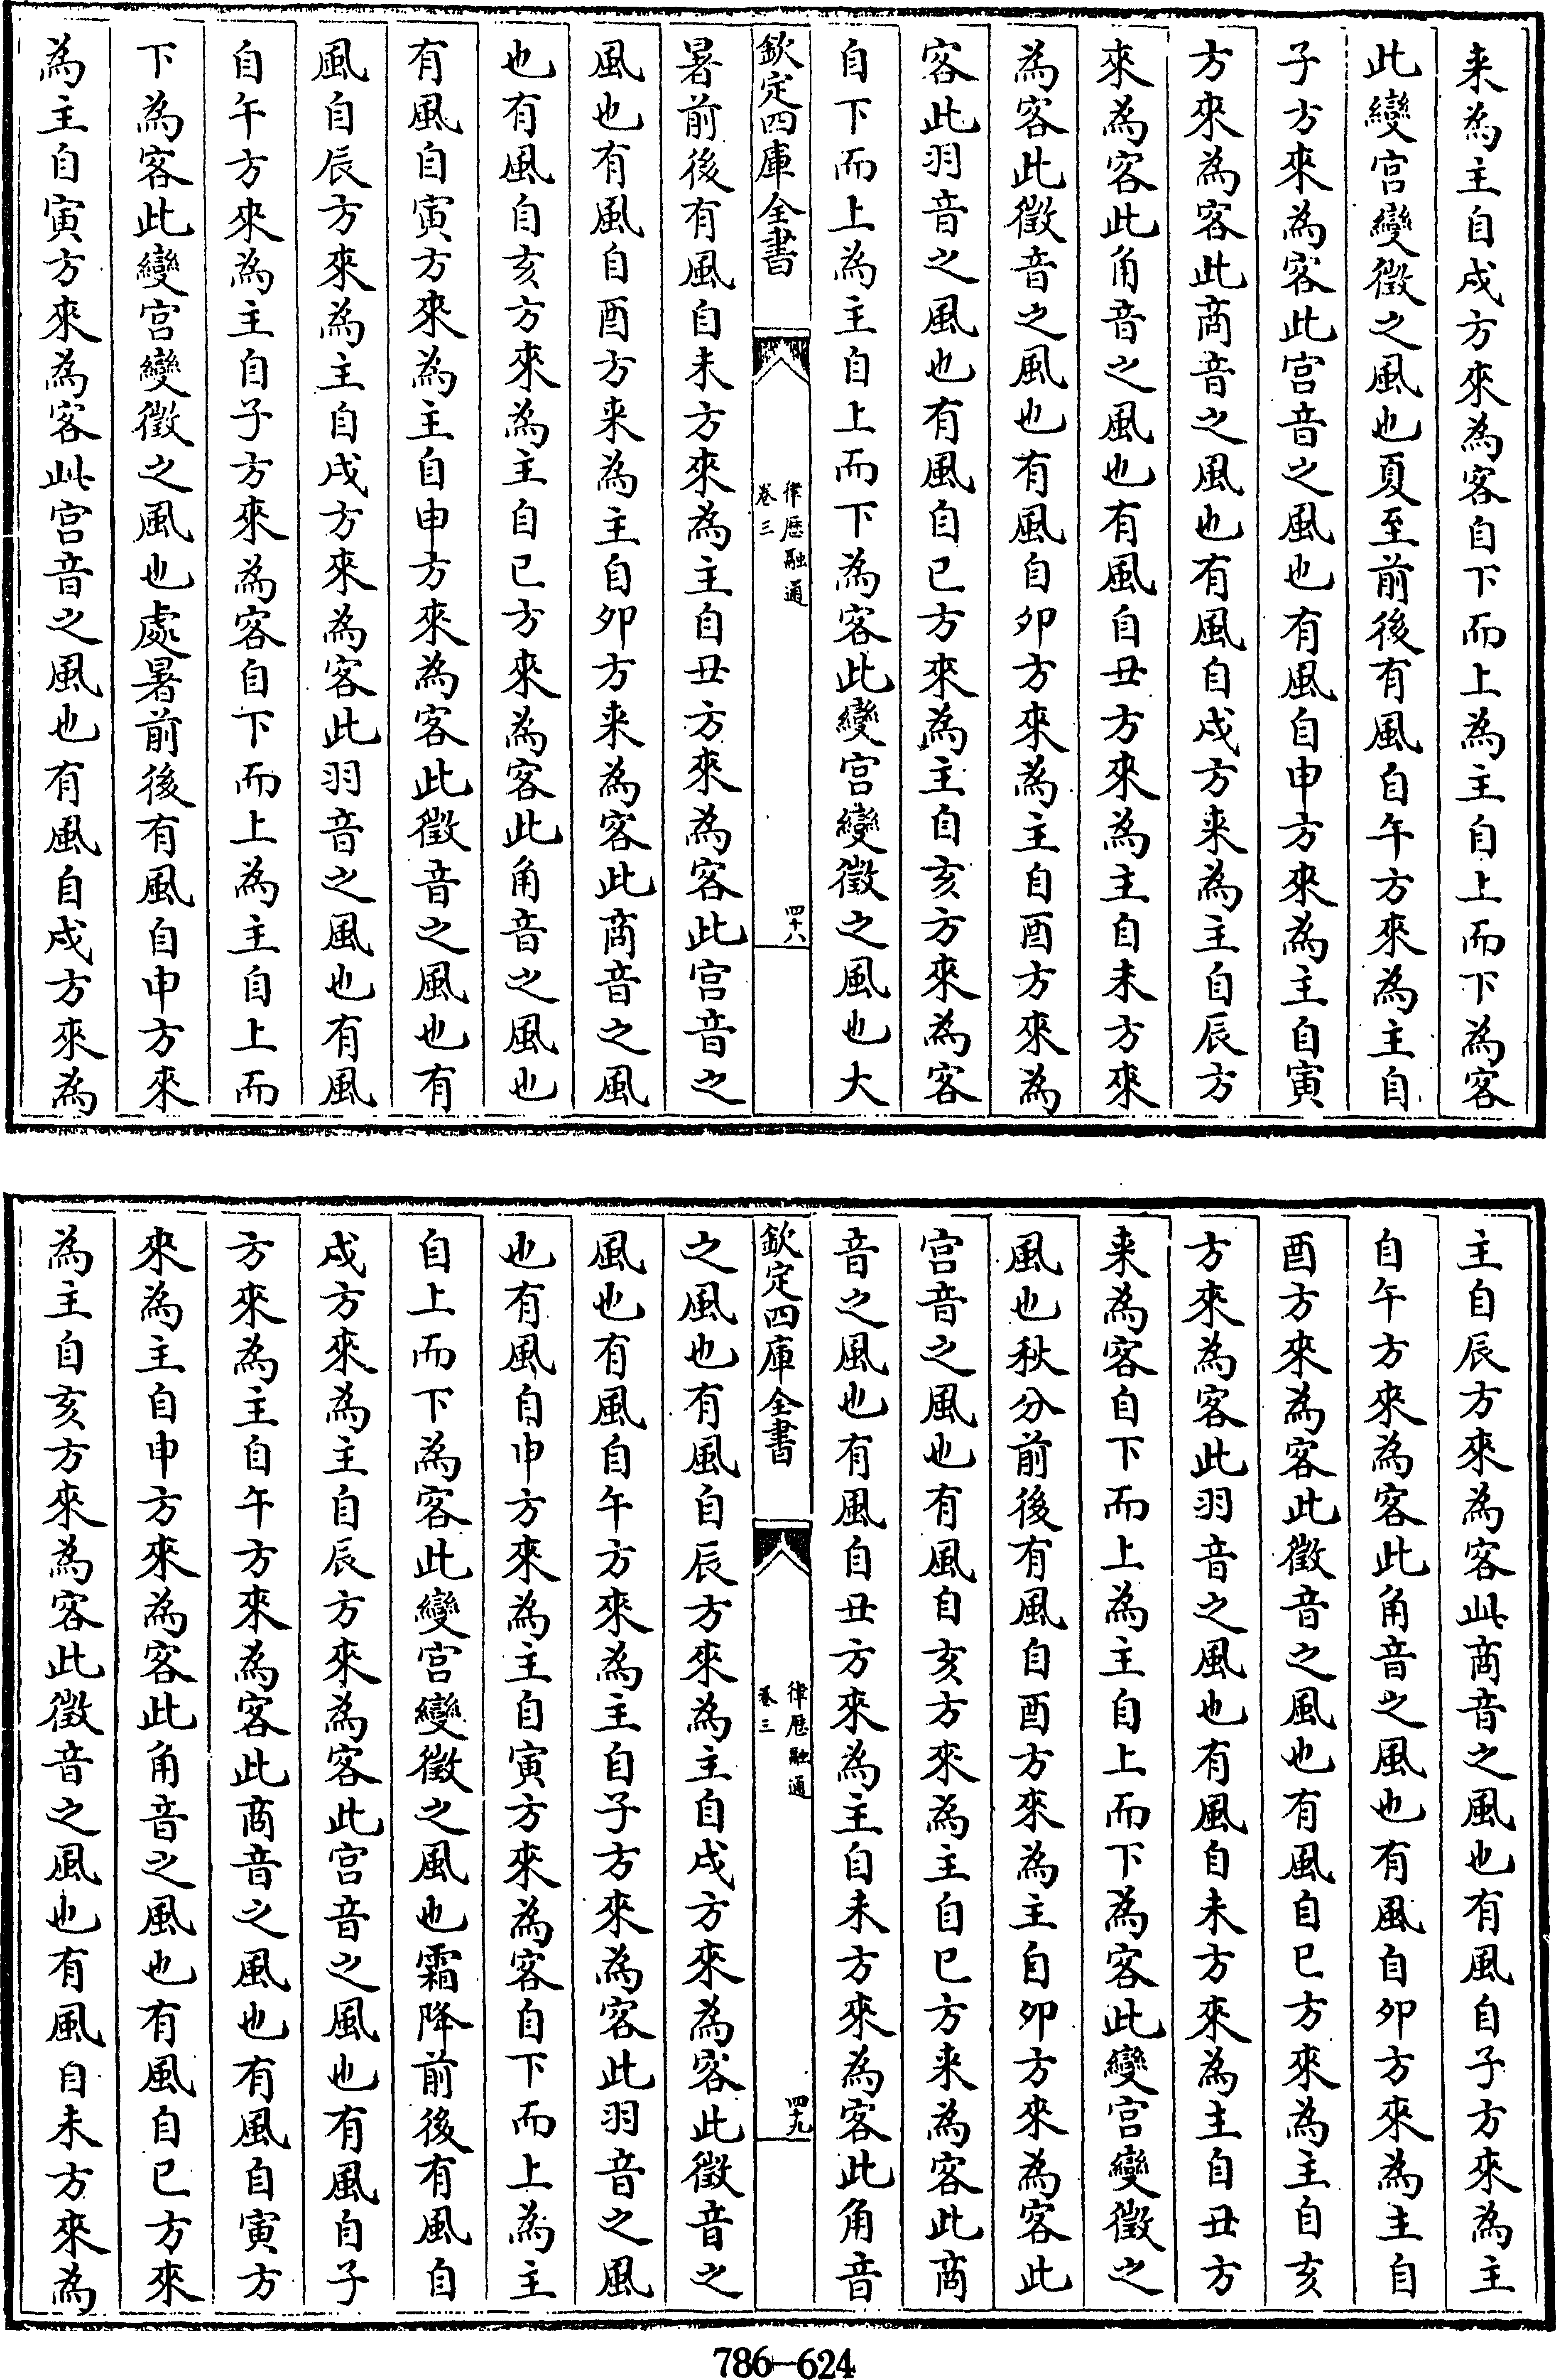 来為主自戌方來為客自下而上為主自上而下為客
此變宮變徵之風也夏至前後有風自午方來為主自
子方來為客此宮音之風也有風自申方來為主自寅
方來為客此商音之風也有風自戌方来為主自辰方
來為客此角音之風也有風自丑方來為主自未方來
為客此徵音之風也有風自卯方來為主自酉方來為
客此羽音之風也有風自巳方來為主自亥方來為客
自下而上為主自上而下為客此變宮變徵之風也大
欽定四庫全書
律厯融通
卷三
四十八
暑前後有風自未方來為主自丑方來為客此宮音之
風也有風自酉方来為主自卯方来為客此商音之風
也有風自亥方來為主自巳方來為客此角音之風也
有風自寅方來為主自申方來為客此徵音之風也有
風自辰方來為主自戌方來為客此羽音之風也有風
自午方來為主自子方來為客自下而上為主自上而
下為客此變宮變徵之風也處暑前後有風自申方來
為主自寅方來為客此宮音之風也有風自戌方來為
主自辰方來為客此商音之風也有風自子方來為主
自午方來為客此角音之風也有風自卯方來為主自
酉方來為客此徵音之風也有風自巳方來為主自亥
方來為客此羽音之風也有風自未方來為主自丑方
来為客自下而上為主自上而下為客此變宮變徵之
風也秋分前後有風自酉方來為主自卯方來為客此
宮音之風也有風自亥方來為主自巳方来為客此商
音之風也有風自丑方來為主自未方來為客此角音
欽定四庫全書
律厯融通
卷三
四十九
之風也有風自辰方來為主自戌方來為客此徵音之
風也有風自午方來為主自子方來為客此羽音之風
也有風自申方來為主自寅方來為客自下而上為主
自上而下為客此變宮變徵之風也霜降前後有風自
戌方來為主自辰方來為客此宮音之風也有風自子
方來為主自午方來為客此商音之風也有風自寅方
來為主自申方來為客此角音之風也有風自巳方來
為主自亥方來為客此徵音之風也有風自未方來為
786-624